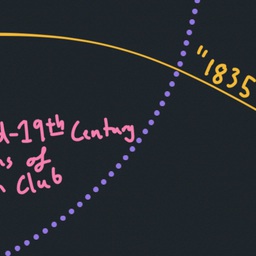 "1835
d-19th Century
ns of
n Club